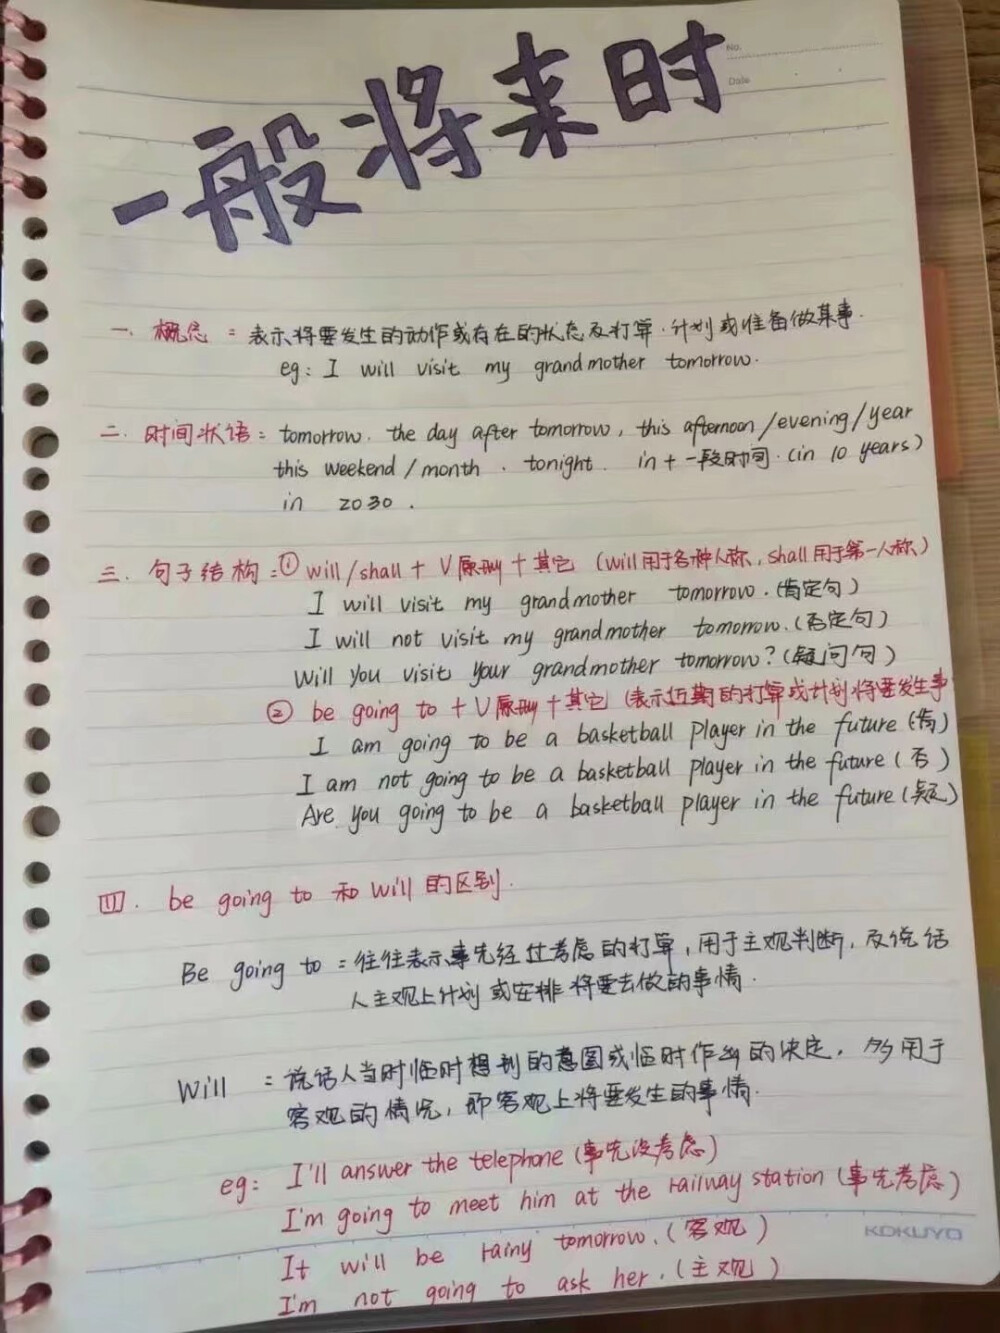 一般将来时
No.
Date
一. 概念：表示将要发生的动作或存在的状态及打算.计划或准备做某事.
eg: I will visit my grandmother tomorrow.
二. 时间状语：tomorrow. the day after tomorrow, this afternoon/evening/year
this weekend/month. tonight. in+一段时间.(in 10 years)
in 2030.
三. 句子结构：① will/shall + V原型 + 其它 (will用于各种人称, shall用于第一人称)
I will visit my grandmother tomorrow.(肯定句)
I will not visit my grandmother tomorrow.(否定句)
Will you visit your grandmother tomorrow?(疑问句)
② be going to + V原型 + 其它 (表示近期的打算或计划将要发生事
I am going to be a basketball player in the future (肯)
I am not going to be a basketball player in the future (否)
Are you going to be a basketball player in the future (疑)
四. be going to 和 will 的区别.
Be going to：往往表示事先经过考虑的打算，用于主观判断，及说话
人主观上计划或安排将要去做的事情.
Will：说话人当时临时想到的意图或临时作出的决定，多用于
客观的情况，即客观上将要发生的事情.
eg: I'll answer the telephone (事先没考虑)
I'm going to meet him at the railway station (事先考虑)
It will be rainy tomorrow.(客观)
I'm not going to ask her.(主观)
KOKUYO